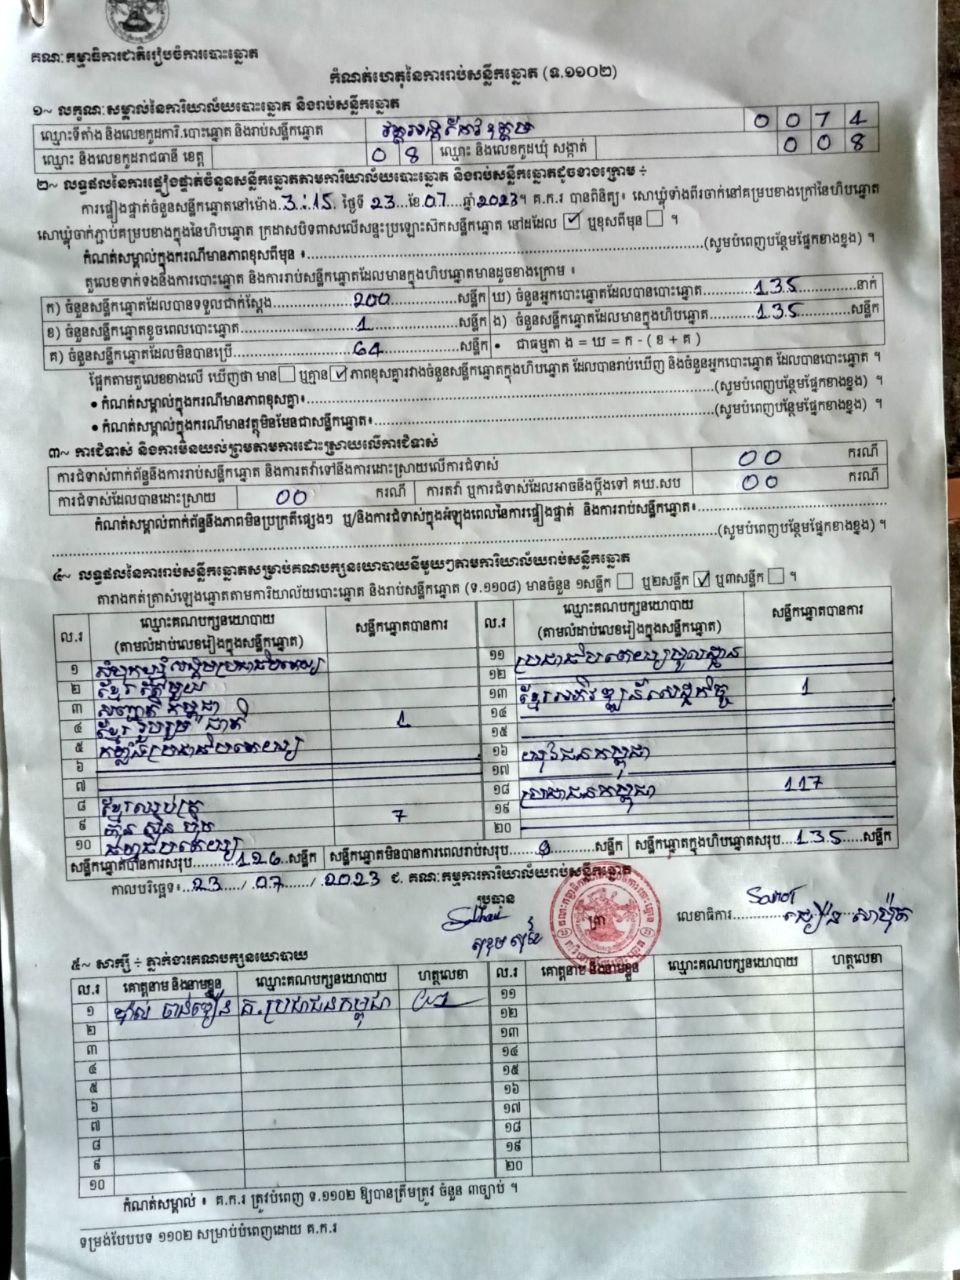 គណៈកម្មាធិការជាតិរៀបចំការបោះឆ្នោត
កំណត់ហេតុនៃការរាប់សន្លឹកឆ្នោត (ទ.១១០២)
១~ លក្ខណៈសម្គាល់នៃការិយាល័យបោះឆ្នោត និងរាប់សន្លឹកឆ្នោត
ឈ្មោះទីតាំង និងលេខកូដការិ.បោះឆ្នោត និងរាប់សន្លឹកឆ្នោត 0 0 7 4
ឈ្មោះ និងលេខកូដរាជធានី ខេត្ត 0 8 ឈ្មោះ និងលេខកូដឃុំ សង្កាត់ 0 0 8
២~ លទ្ធផលនៃការផ្ទៀងផ្ទាត់ចំនួនសន្លឹកឆ្នោតតាមការិយាល័យបោះឆ្នោត និងរាប់សន្លឹកឆ្នោតដូចខាងក្រោម ÷
ការផ្ទៀងផ្ទាត់ចំនួនសន្លឹកឆ្នោតនៅម៉ោង 3:15 ថ្ងៃទី 23 ខែ 07 ឆ្នាំ 2023 ។ គ.ក.រ បានពិនិត្យ៖ សោឃ្នុំទាំងពីរចាក់នៅគម្របខាងក្រៅនៃហិបឆ្នោត
សោឃ្នុំចាក់ភ្ជាប់គម្របខាងក្នុងនៃហិបឆ្នោត ក្រដាសបិទពាសលើសន្ទះប្រឡោះស៊កសន្លឹកឆ្នោត នៅដដែល ☑ ឬខុសពីមុន ☐ ។
កំណត់សម្គាល់ក្នុងករណីមានភាពខុសពីមុន ៖ (សូមបំពេញបន្ថែមផ្នែកខាងខ្នង) ។
តួលេខទាក់ទងនឹងការបោះឆ្នោត និងការរាប់សន្លឹកឆ្នោតដែលមានក្នុងហិបឆ្នោតមានដូចខាងក្រោម ៖
ក) ចំនួនសន្លឹកឆ្នោតដែលបានទទួលជាក់ស្តែង 200 សន្លឹក ឃ) ចំនួនអ្នកបោះឆ្នោតដែលបានបោះឆ្នោត 135 នាក់
ខ) ចំនួនសន្លឹកឆ្នោតខូចពេលបោះឆ្នោត 1 សន្លឹក ង) ចំនួនសន្លឹកឆ្នោតដែលមានក្នុងហិបឆ្នោត 135 សន្លឹក
គ) ចំនួនសន្លឹកឆ្នោតដែលមិនបានប្រើ 64 សន្លឹក • ជាធម្មតា ង = ឃ = ក - ( ខ + គ )
ផ្អែកតាមតួលេខខាងលើ ឃើញថា មាន ☐ ឬគ្មាន ☑ ភាពខុសគ្នារវាងចំនួនសន្លឹកឆ្នោតក្នុងហិបឆ្នោត ដែលបានរាប់ឃើញ និងចំនួនអ្នកបោះឆ្នោត ដែលបានបោះឆ្នោត ។
• កំណត់សម្គាល់ក្នុងករណីមានភាពខុសគ្នា៖ (សូមបំពេញបន្ថែមផ្នែកខាងខ្នង) ។
• កំណត់សម្គាល់ក្នុងករណីមានវត្ថុមិនមែនជាសន្លឹកឆ្នោត៖ (សូមបំពេញបន្ថែមផ្នែកខាងខ្នង) ។
៣~ ការជំទាស់ និងការមិនយល់ព្រមតាមការដោះស្រាយលើការជំទាស់
ការជំទាស់ពាក់ព័ន្ធនឹងការរាប់សន្លឹកឆ្នោត និងការតវ៉ាទៅនឹងការដោះស្រាយលើការជំទាស់ 00 ករណី
ការជំទាស់ដែលបានដោះស្រាយ 00 ករណី ការតវ៉ា ឬការជំទាស់ដែលអាចនឹងប្តឹងទៅ គឃ.សប 00 ករណី
កំណត់សម្គាល់ពាក់ព័ន្ធនឹងភាពមិនប្រក្រតីផ្សេងៗ ឬ/និងការជំទាស់ក្នុងអំឡុងពេលនៃការផ្ទៀងផ្ទាត់ និងការរាប់សន្លឹកឆ្នោត៖
(សូមបំពេញបន្ថែមផ្នែកខាងខ្នង) ។
៤~ លទ្ធផលនៃការរាប់សន្លឹកឆ្នោតសម្រាប់គណបក្សនយោបាយនីមួយៗតាមការិយាល័យរាប់សន្លឹកឆ្នោត
តារាងកត់ត្រាសំឡេងឆ្នោតតាមការិយាល័យបោះឆ្នោត និងរាប់សន្លឹកឆ្នោត (ទ.១១០៨) មានចំនួន ១សន្លឹក ☐ ឬ២សន្លឹក ☑ ឬ៣សន្លឹក ☐ ។
ល.រ ឈ្មោះគណបក្សនយោបាយ (តាមលំដាប់លេខរៀងក្នុងសន្លឹកឆ្នោត) សន្លឹកឆ្នោតបានការ ល.រ ឈ្មោះគណបក្សនយោបាយ (តាមលំដាប់លេខរៀងក្នុងសន្លឹកឆ្នោត) សន្លឹកឆ្នោតបានការ
១ ១១
២ ខ្មែរតែមួយ ១២
៣ កម្ពុជា ១៣ 1
៤ ខ្មែររួបរួមជាតិ 1 ១៤
៥ ១៥
៦ ១៦ យុវជនកម្ពុជា
៧ ១៧
៨ ១៨ ប្រជាជនកម្ពុជា 117
៩ ហ៊្វុនស៊ិនប៉ិច 7 ១៩
១០ ២០
សន្លឹកឆ្នោតបានការសរុប 126 សន្លឹក សន្លឹកឆ្នោតមិនបានការពេលរាប់សរុប 9 សន្លឹក សន្លឹកឆ្នោតក្នុងហិបឆ្នោតសរុប 135 សន្លឹក
កាលបរិច្ឆេទ៖ 23 / 07 / 2023 ៩. គណៈកម្មការការិយាល័យរាប់សន្លឹកឆ្នោត
ប្រធាន
លេខាធិការ
៥~ សាក្សី ÷ ភ្នាក់ងារគណបក្សនយោបាយ
ល.រ គោត្តនាម និងនាមខ្លួន ឈ្មោះគណបក្សនយោបាយ ហត្ថលេខា ល.រ គោត្តនាម និងនាមខ្លួន ឈ្មោះគណបក្សនយោបាយ ហត្ថលេខា
១ គ.ប្រជាជនកម្ពុជា ១១
២ ១២
៣ ១៣
៤ ១៤
៥ ១៥
៦ ១៦
៧ ១៧
៨ ១៨
៩ ១៩
១០ ២០
កំណត់សម្គាល់ ៖ គ.ក.រ ត្រូវបំពេញ ទ.១១០២ ឱ្យបានត្រឹមត្រូវ ចំនួន ៣ច្បាប់ ។
ទម្រង់បែបបទ ១១០២ សម្រាប់បំពេញដោយ គ.ក.រ